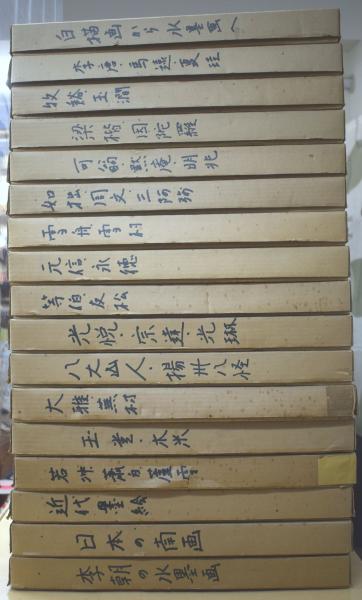 白描画から水墨画へ
李唐・馬遠・夏珪
牧谿・玉澗
梁楷・因陀羅
可翁・黙庵・明兆
如拙・周文・三阿弥
雪舟・雪村
元信・永徳
等伯・友松
光悦・宗達・光琳
八大山人・揚州八怪
大雅・蕪村
玉堂・木米
若冲・蕭白・蘆雪
近代墨絵
日本の南画
李朝の水墨画